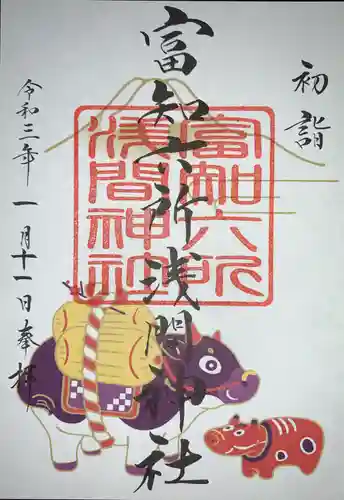 初詣
富知六所浅間神社
令和三年一月十一日奉拝
富知六所
浅間神社